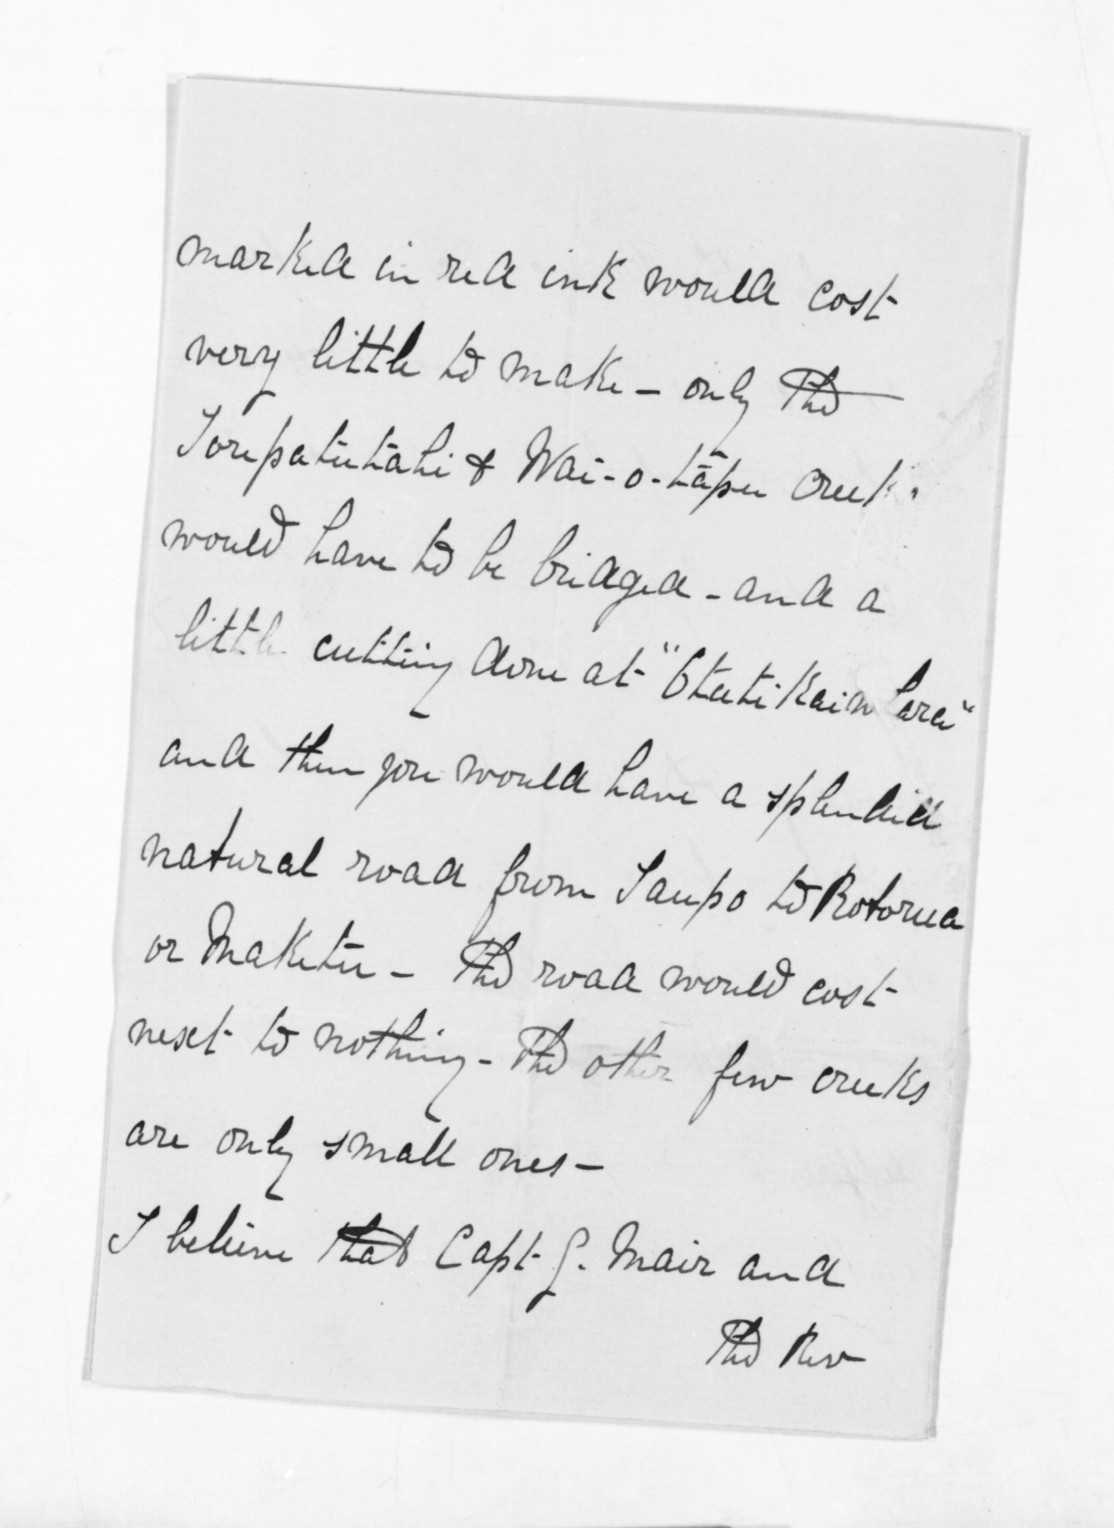 marked in red ink would cost
very little to make - only the
Torepatutahi & Wai-o-tāpu creeks
would have to be bridged - and a
little cutting done at
and then you would have a splendid
natural road from Taupo to Rotorua
or Maketu - The road would cost
next to nothing - The other few creeks
are only small ones -
I believe that Capt G. Mair and
The Rev